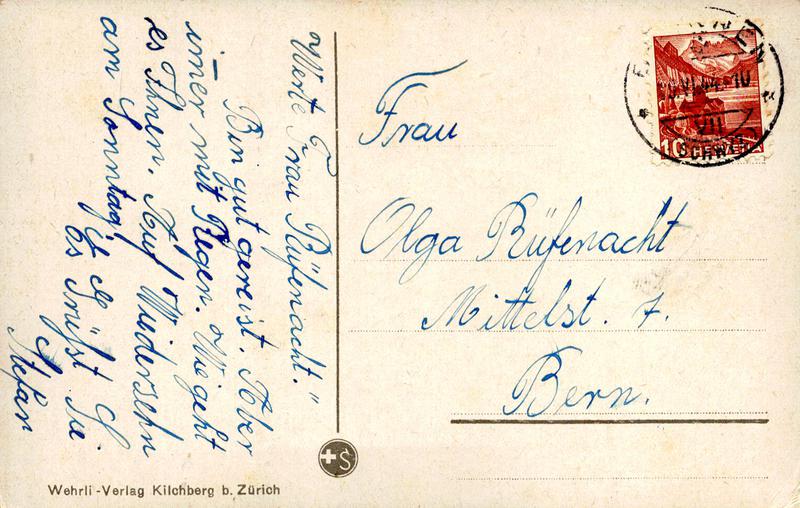 Werte Frau Rüfenacht."
Bin gut gereist. Aber
imer mit Regen. Wie geht
es Ihnen. Auf Wiedersehn
am Sonntag!
Es Grüsst Sie
Stefan
Frau
Olga Rüfenacht
Mittelst. 7.
Bern.
VI.44.-10
VII
10 HELVETIA
SCHWEIZ
S
Wehrli-Verlag Kilchberg b. Zürich